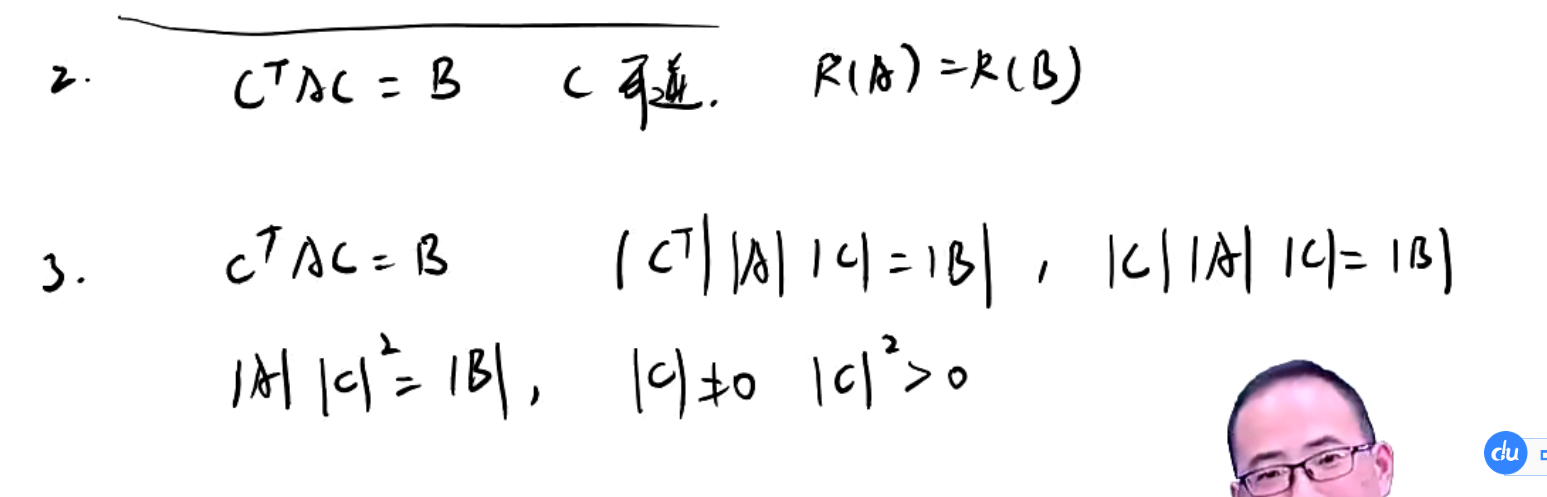 2. C^T AC = B C 可逆. R(A) = R(B)
3. C^T AC = B |C^T| |A| |C| = |B| , |C| |A| |C| = |B|
|A| |C|² = |B| , |C| ≠ 0 |C|² > 0
du